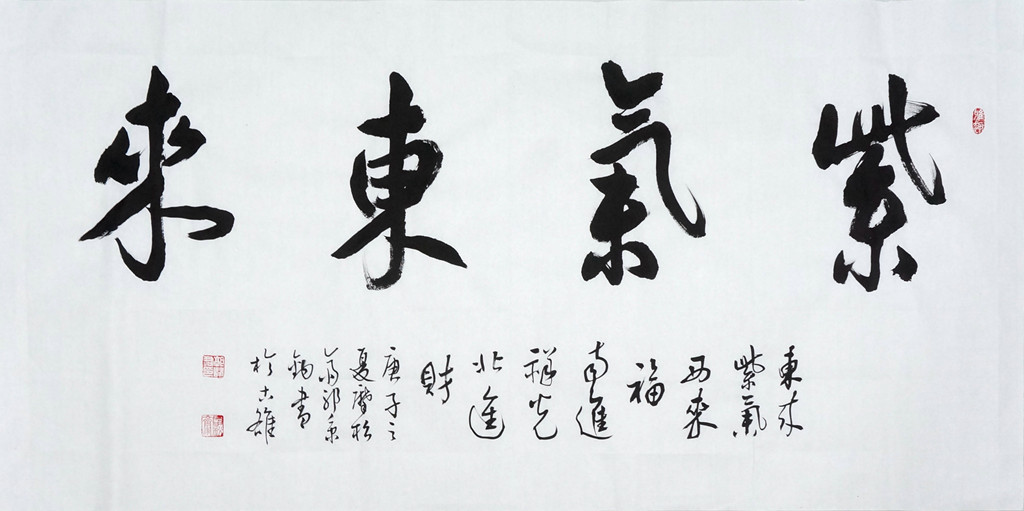 紫氣東來
東來
紫氣
西來
福
南進
祥光
北進
財
庚子之
夏
書
於古雒